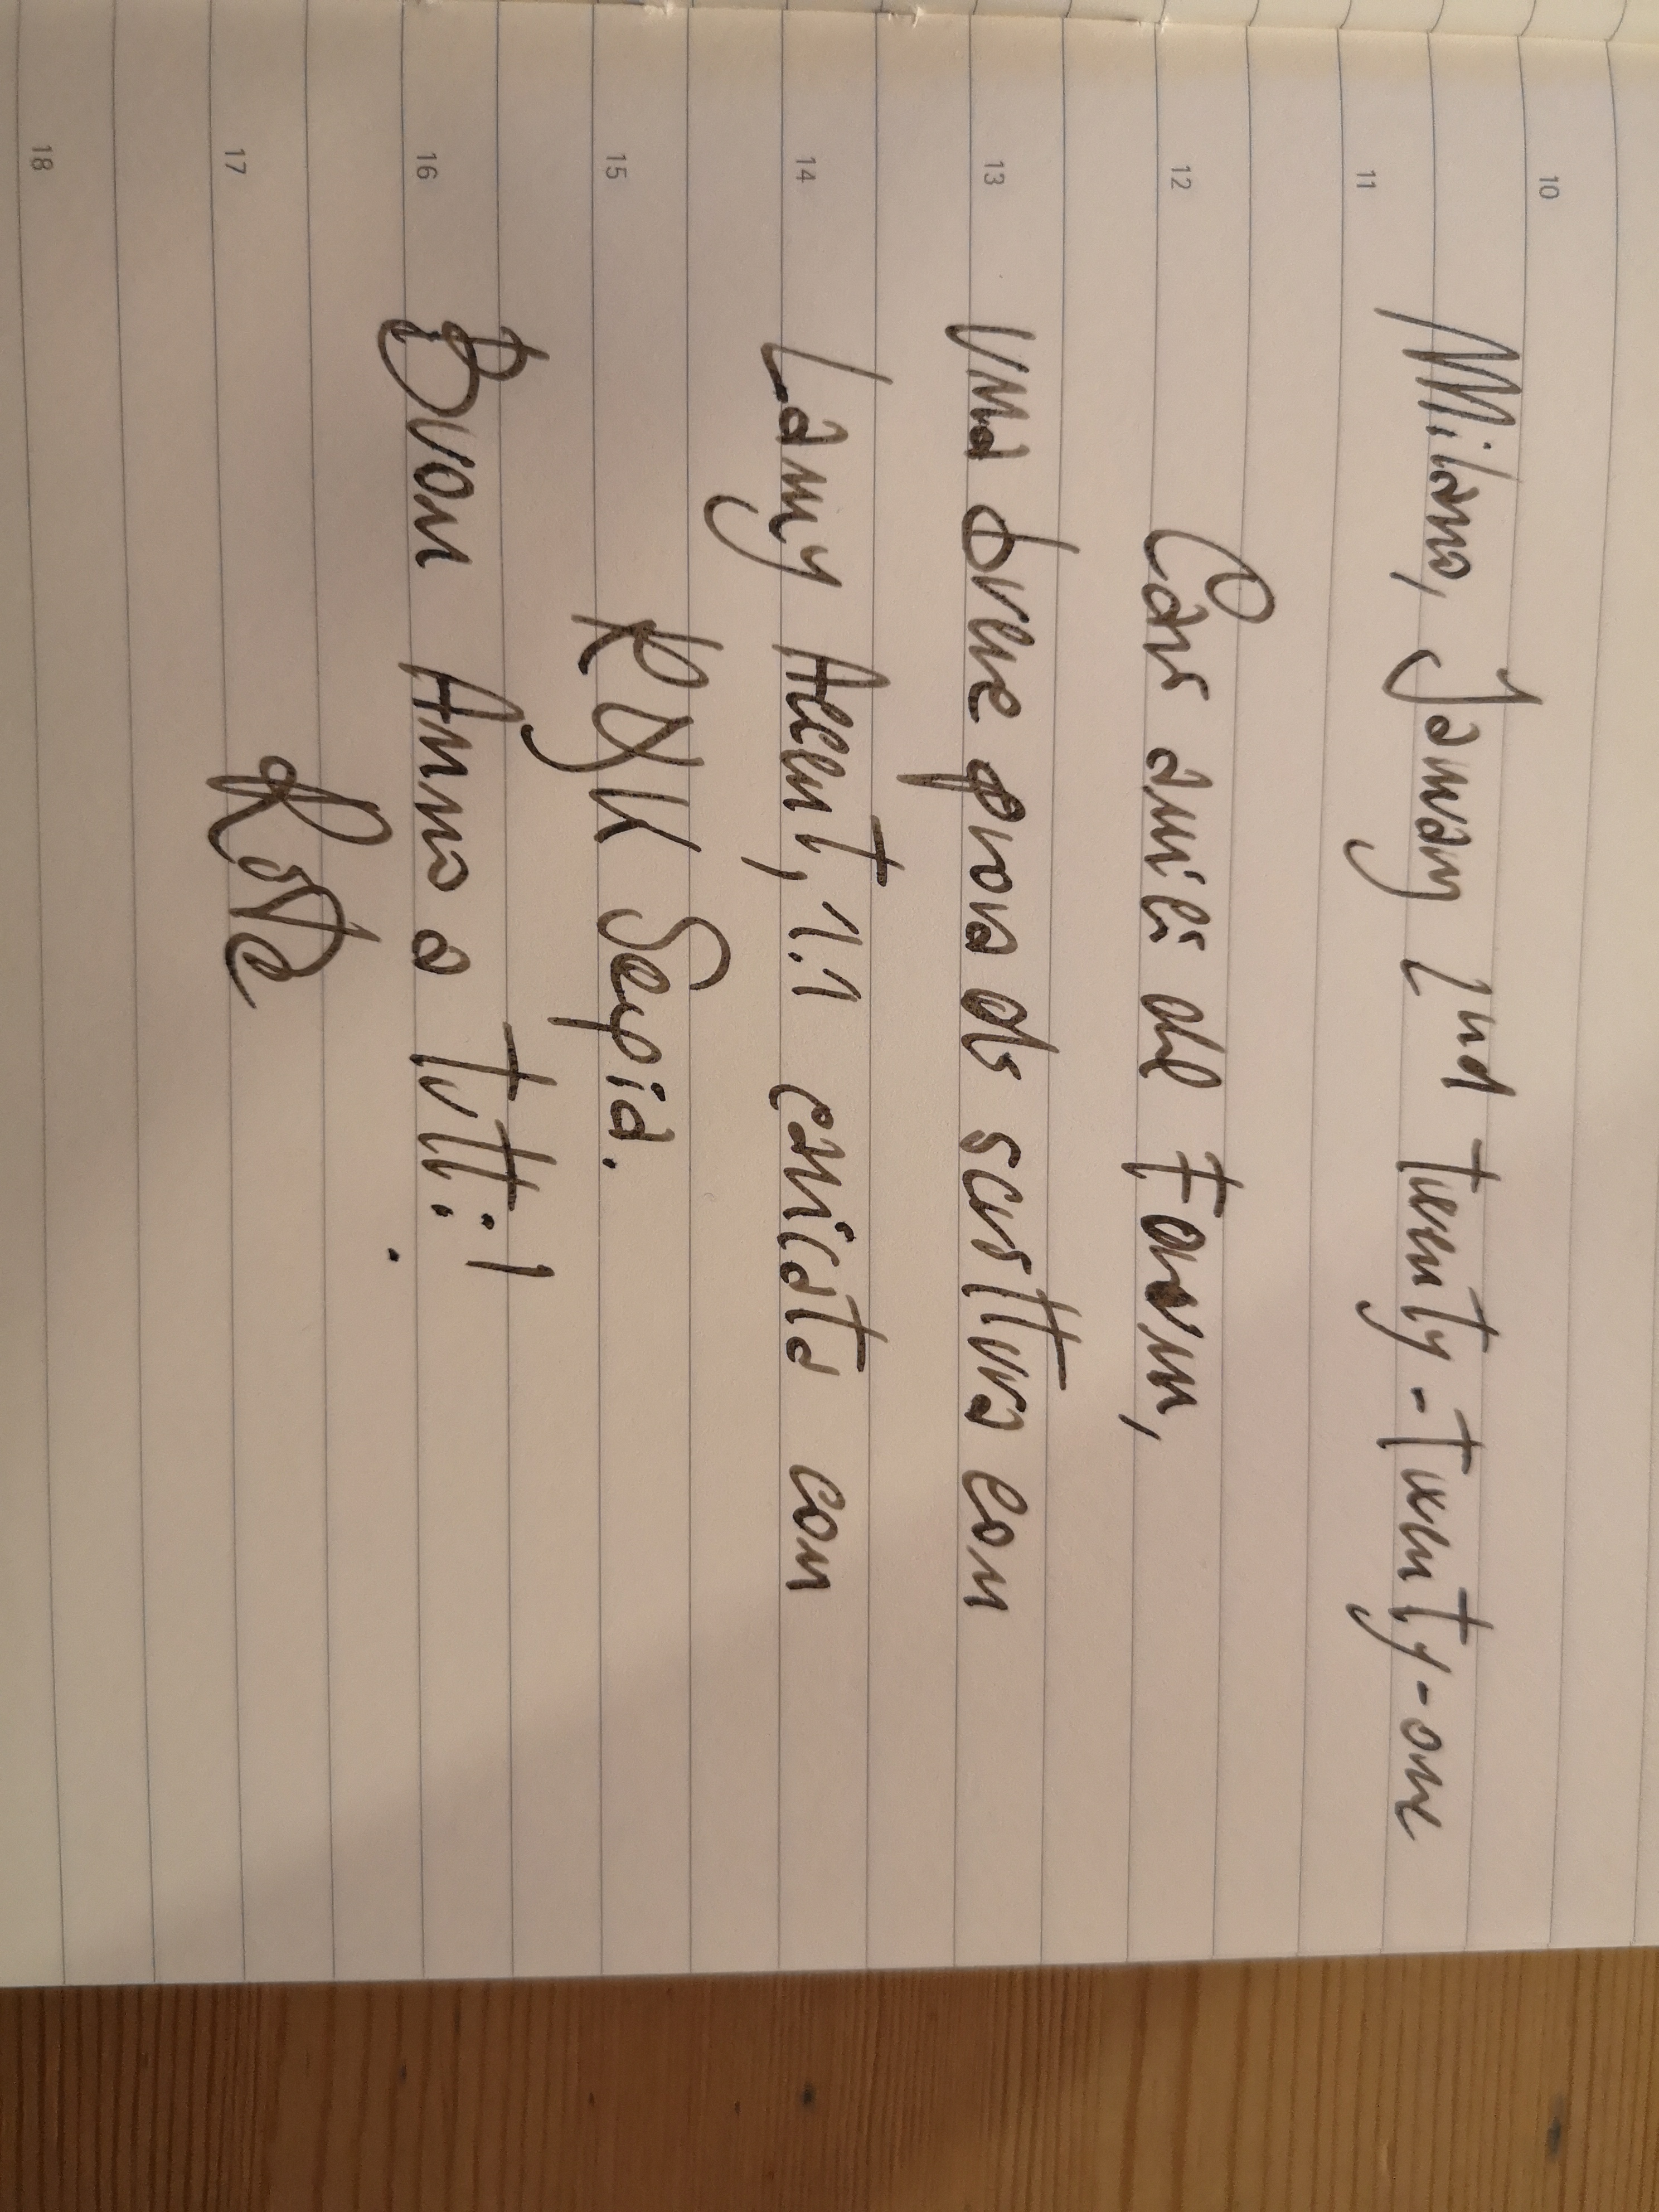 10
11
Milano, January 2nd twenty-twenty-one
12
Cari amici del Forum,
13
una breve prova di scrittura con
14
Lamy Accent, 1.1 caricata con
15
R&K Sepia.
16
Buon Anno a tutti!
17
18